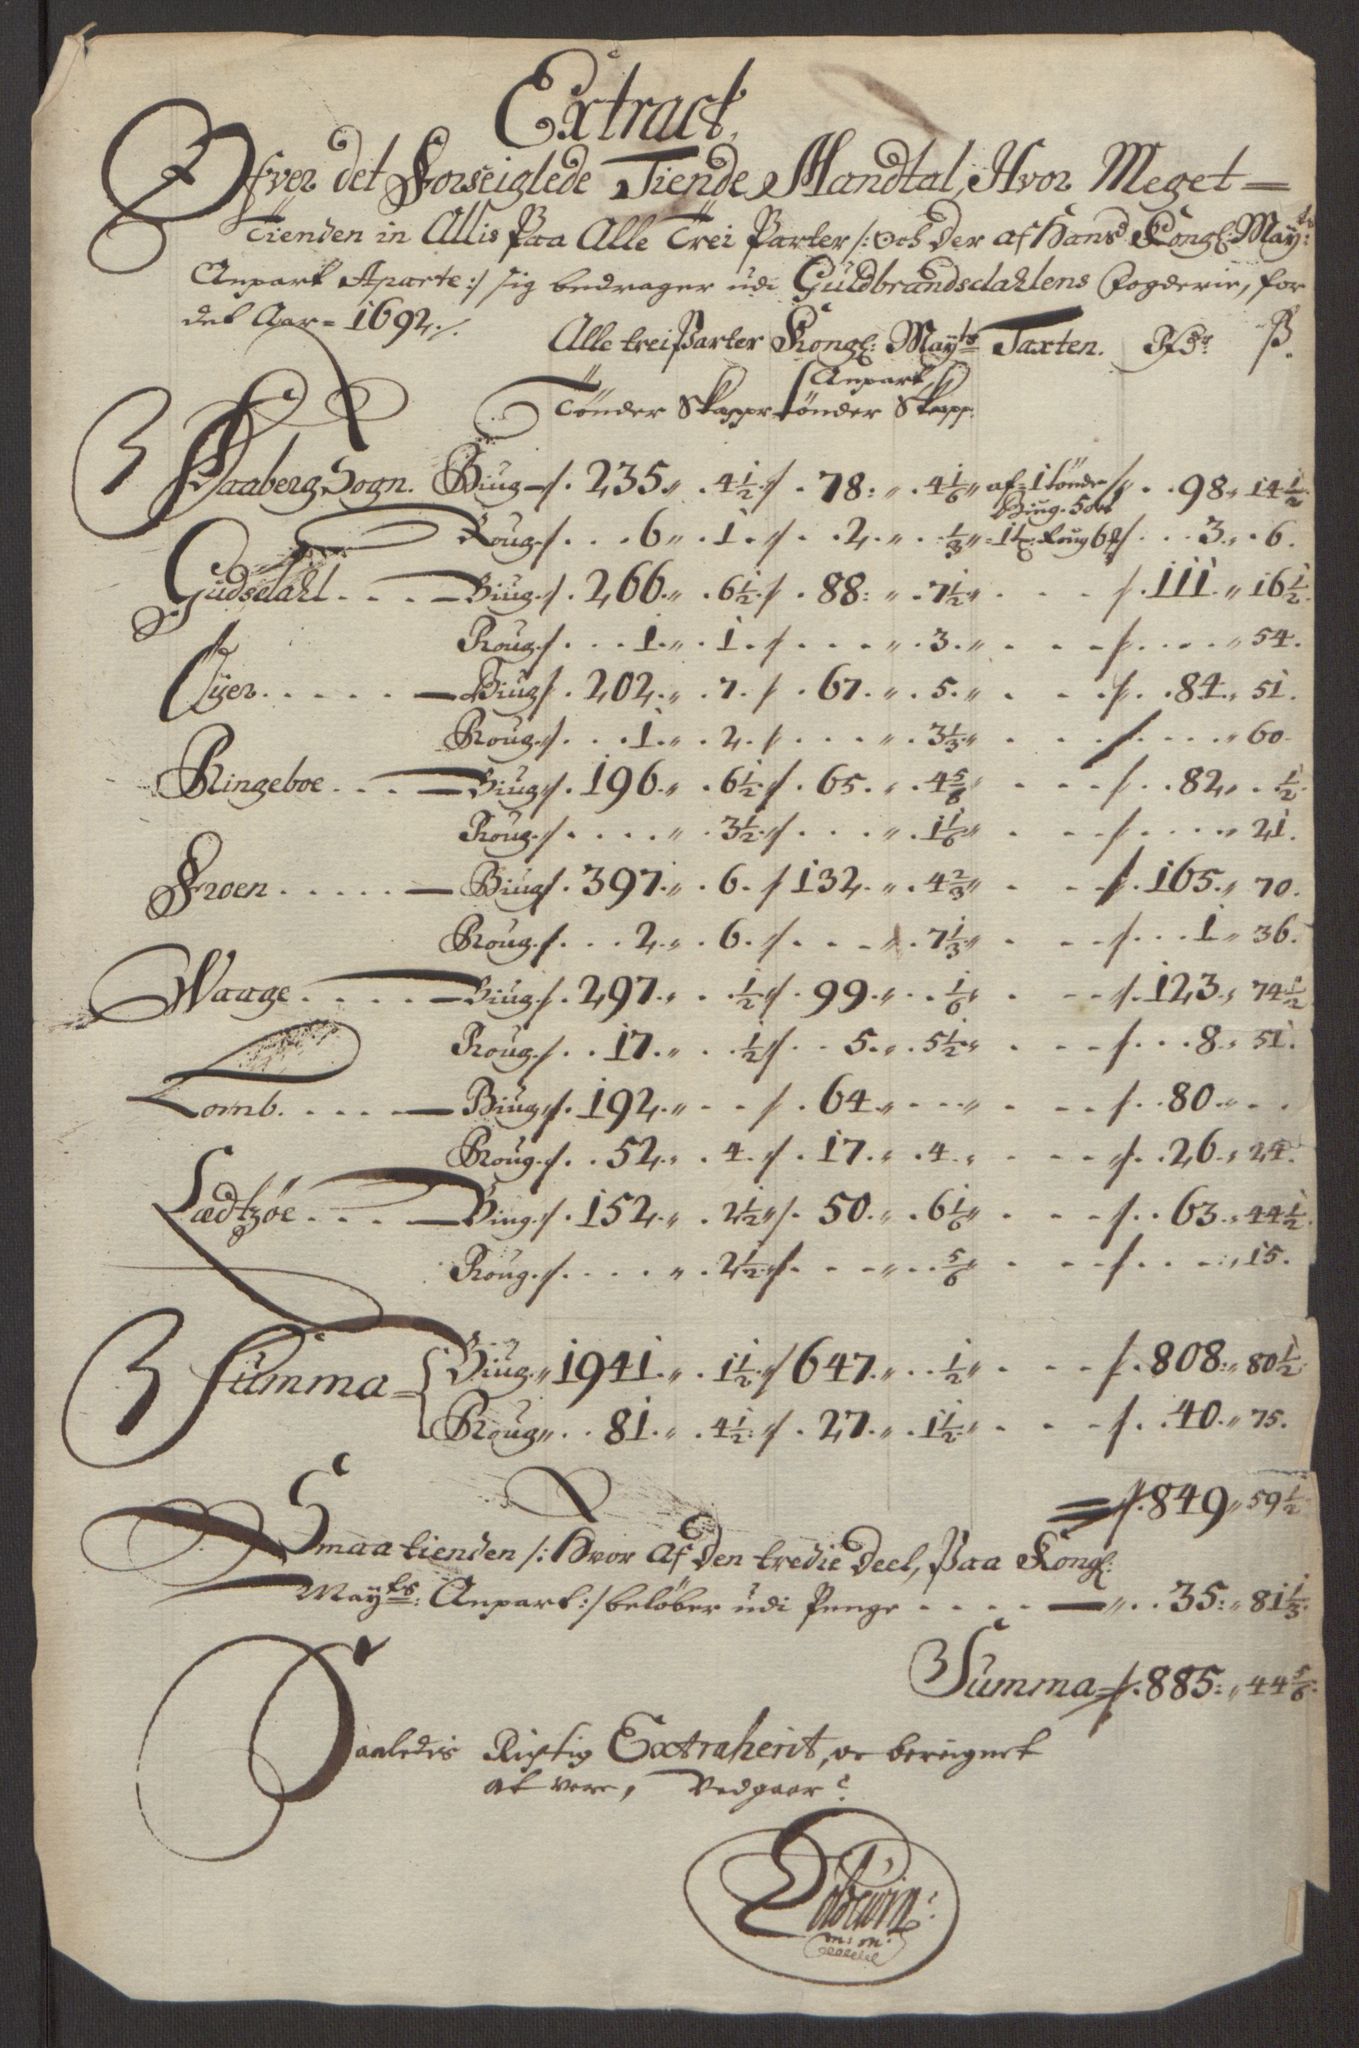 Extract,
Ofver det Forseiglede Tiende Mandtal, Hvor Meget =
Tienden in Allis Paa Alle Trei Parter /: Och der af Hans Kongl: Mayts:
Anpart Aparte :/ sig bedrager udi Guldbrandsdahlens fogderie, for
det Aar = 1692 ./.
Alle trei Parter Kongl: Mayts Taxten. Rdr ß.
Anpart
Tønder Skeppr Tønder Skepp:
Faaberg Sogn. Biug ./. 235 .,, . 4½ ./. 78 : ,, . 4 1/6 ,, af 1 tønde ./. . 98 ,, 14½.
Biug. 5 ort
Roug ./. . . 6 ,, . 1 . /. . 2 . ,, . 1/3 ,, 1 t. Roug 6 ./. . . 3 ,, . 6.
Gudsdahl . . . — Biug ./. 266 . ,, . 6½ ./. 88 : ,, . 7½ ,, . . . ./. 111 . ,, 16½.
Roug ./. . . 1 . ,, . 1 . /. . . . ,, . 3 . ,, . . . /. . . . ,, 54.
Øyer . . . . . — Biug ./. 202 . ,, . 7 . /. 67 . ,, . 5 . ,, . . . /. . 84 ,, 51.
Roug ./. . . 1 . ,, . 2 . /. . . . ,, . 3 1/3 . . . . /. . . . ,, 60.
Ringeboe . . . — Biug ./. 196 . ,, . 6½ ./. 65 . ,, . 4 5/6 ,, . . . /. . 82 ,, . ½.
Roug ./. . . . ,, . 3½ ./. . . . ,, . 1 1/6 ,, . . . /. . . . ,, 21.
Froen . . . . . — Biug ./. 397 . ,, . 6 . /. 132 . ,, . 4 2/3 ,, . . . /. 165 . ,, 70.
Roug ./. . . 2 . ,, . 6 . /. . . . ,, . 7 1/3 . . . . /. . . 1 ,, 36.
Waage . . . . — Biug ./. 297 . ,, . ½ ./. 99 . ,, . 1/6 . . . . /. 123 . ,, 74½
Roug ./. . 17 . ,, . ½ ./. . 5 . ,, . 5½ . . . . /. . . 8 ,, 51.
Lomb . . . . — Biug ./. 192 . ,, . . /. 64 . ,, . . . . . . /. . 80 . ,, . .
Roug ./. . 52 . ,, . 4 . /. 17 . ,, . 4 . . . . /. . 26 ,, 24.
Lædtzøe . . . — Biug ./. 152 . ,, . 2½ ./. 50 . ,, . 6 1/6 . . . . /. . 63 ,, 44½.
Roug ./. . . . ,, . 2½ ./. . . . ,, . 5/6 ,, . . . /. . . . ,, 15.
Summa = { Biug ,, 1941 . ,, . 1½ ./. 647 . ,, . ½ ,, . . . /. 808 : ,, 80½.
Roug ,, . . 81 . ,, . 4½ ./. 27 . ,, . 1½ . . . . /. . 40 . ,, 75.
= /. 849 ,, 59½
Smaa tienden /: Hvor Af Den tredie Deel, Paa Kongl:
Mayts: Anpart :/ beløber udi Penge . . . . — ,, . . 35 : ,, 81 1/3.
Summa = /. 885 : ,, 44 5/6.
Saaledis Rigtig Extraherit, oc beregnet
at vere, Vedgaar
m: m: